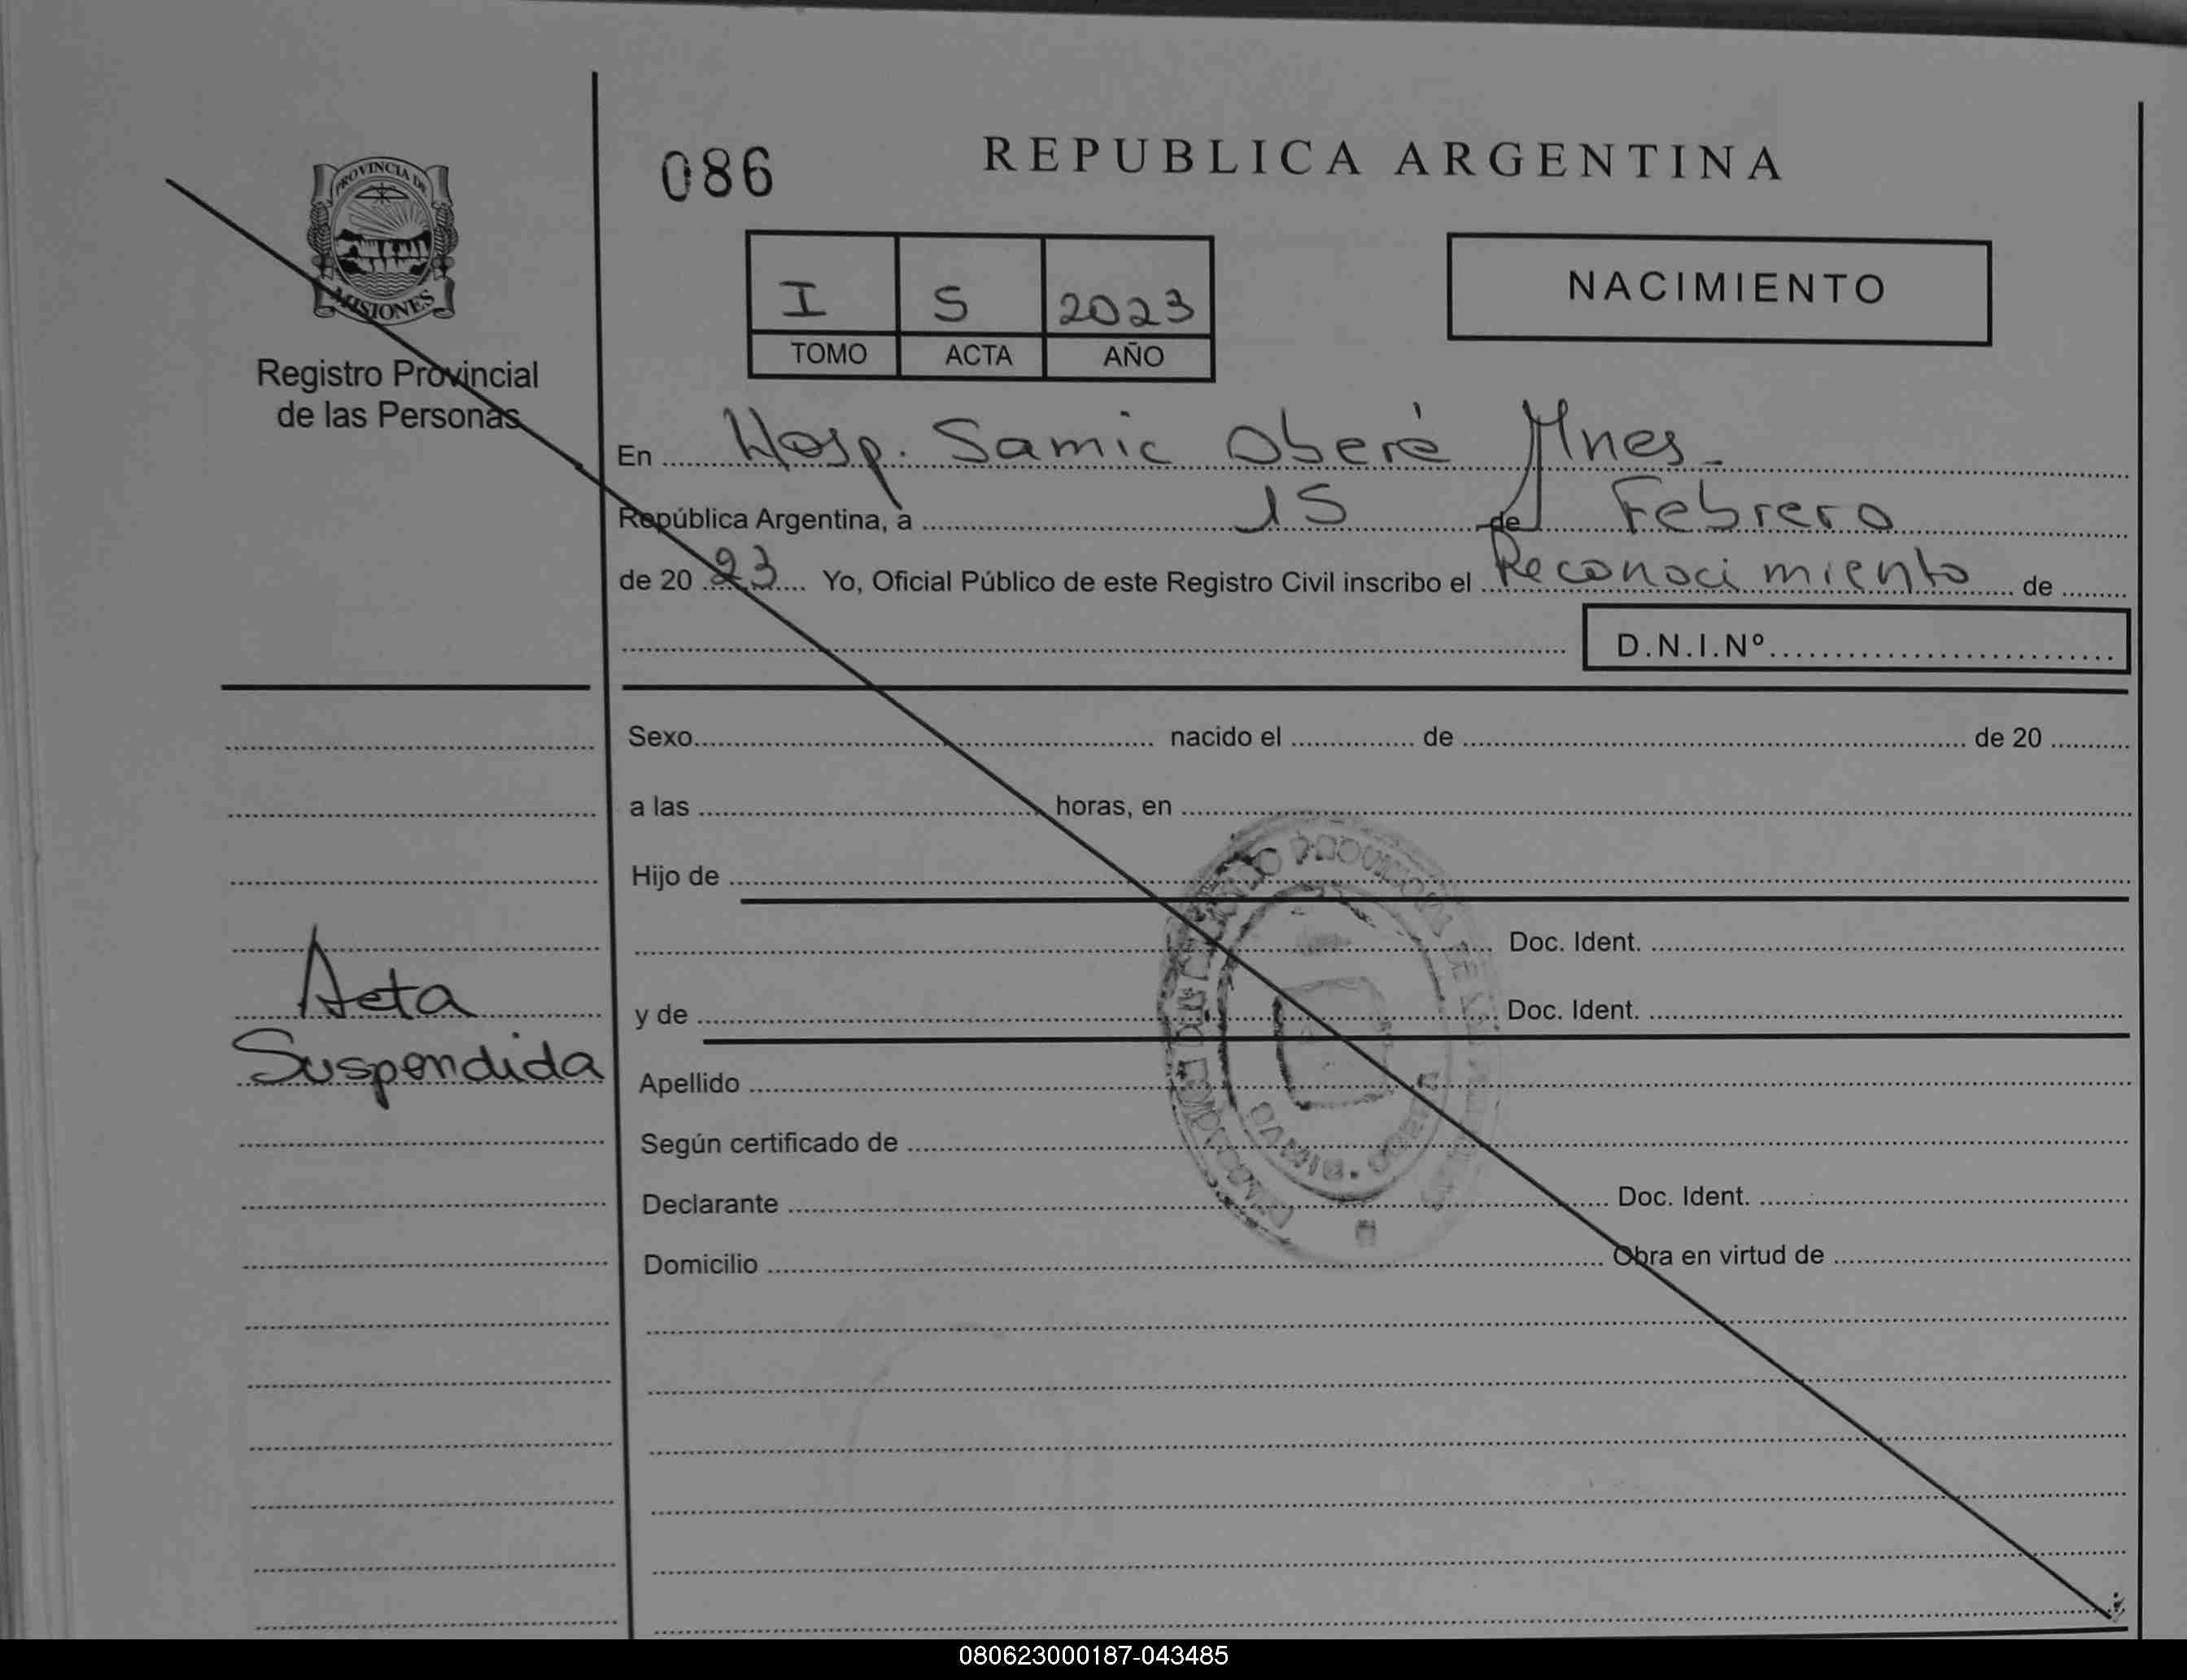 PROVINCIA DE
MISIONES
Registro Provincial
de las Personas
086
REPUBLICA ARGENTINA
I S 2023
TOMO ACTA AÑO
NACIMIENTO
En Hosp. Samic Oberá Mnes.
República Argentina, a 15 de Febrero
de 20 23 Yo, Oficial Público de este Registro Civil inscribo el Reconocimiento de
D.N.I.Nº
Sexo nacido el de de 20
a las horas, en
Hijo de
Doc. Ident.
y de Doc. Ident.
Acta
Suspendida
Apellido
Según certificado de
Declarante Doc. Ident.
Domicilio Obra en virtud de
080623000187-043485